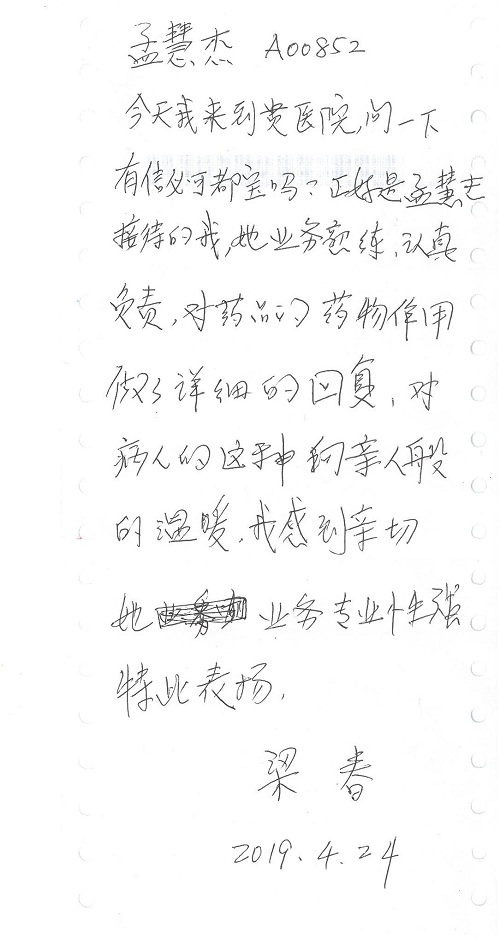 孟慧杰 A00852
今天我来到贵医院,问一下
有信必可都宝吗?正好是孟慧杰
接待的我,她业务熟练、认真
负责,对药品的药物作用
做了详细的回复,对
病人的这种向亲人般
的温暖,我感到亲切
她 业务专业性强
特此表扬.
梁春
2019.4.24